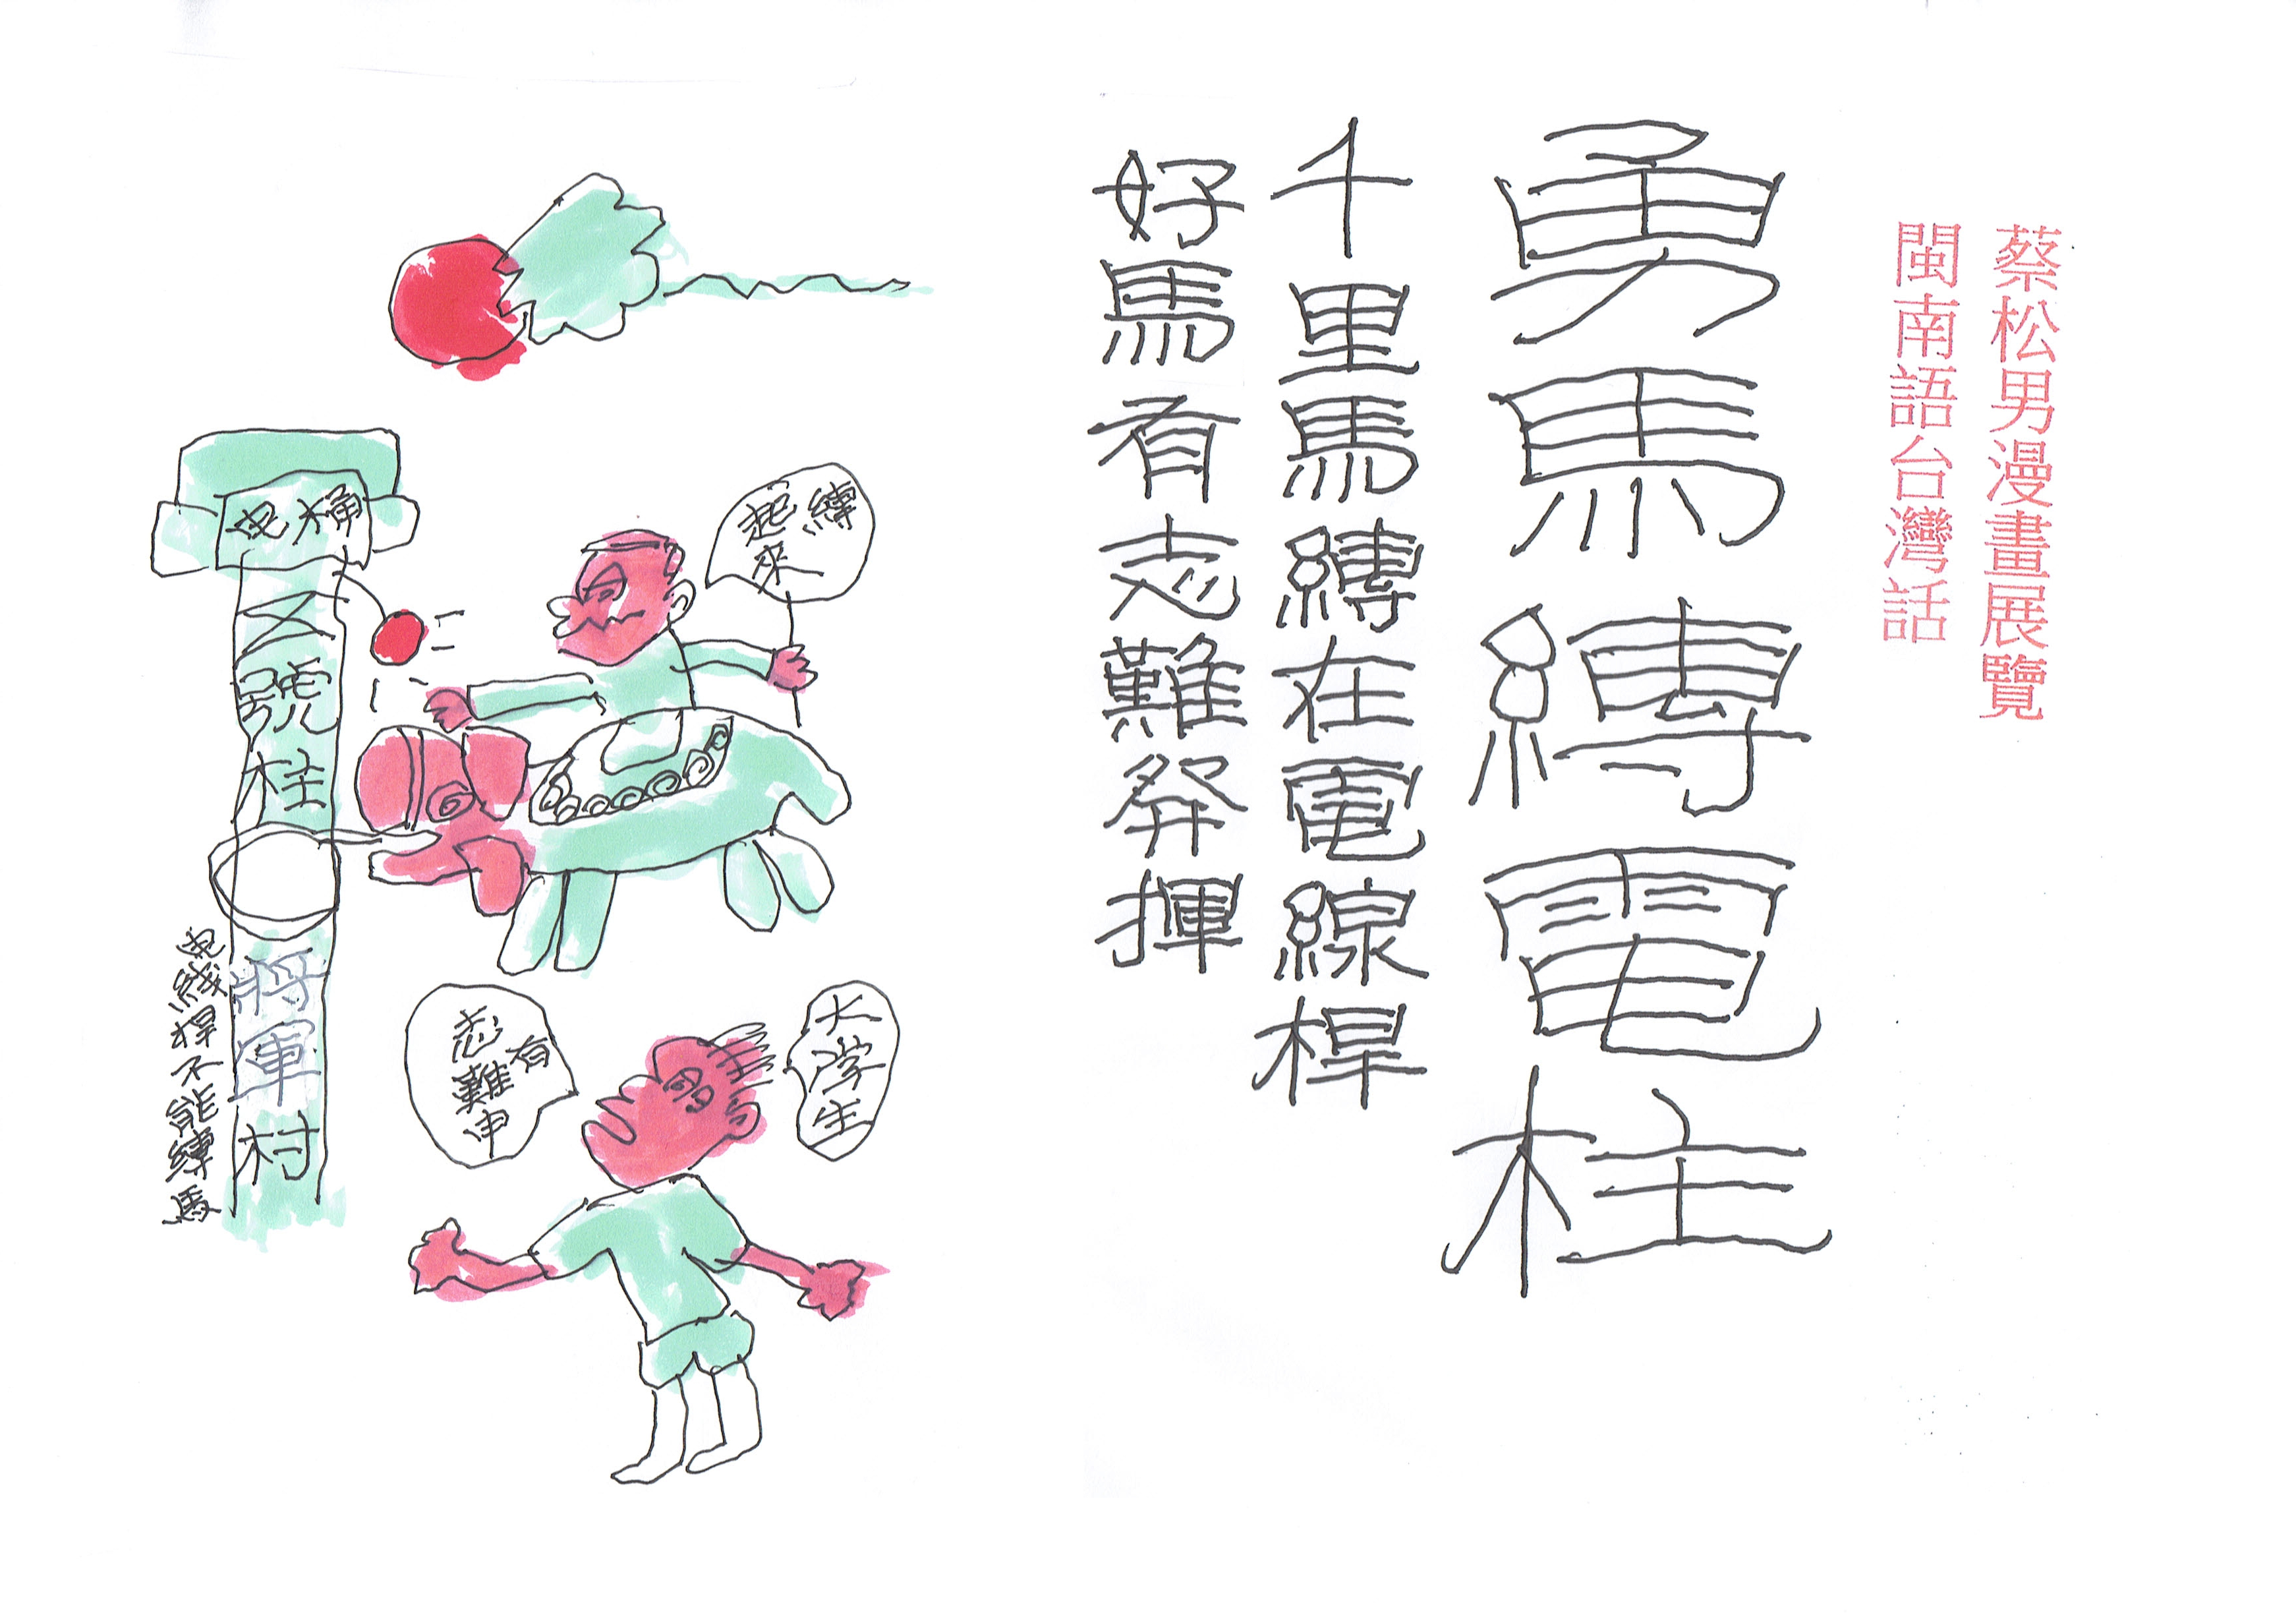 蔡松男漫畫展覽
閩南語台灣話
勇馬縛電柱
千里馬縛在電線桿
好馬有志難發揮
縛
起來
大学生
有
志難申
电桶
五號柱
將軍村
电线桿不能縛馬